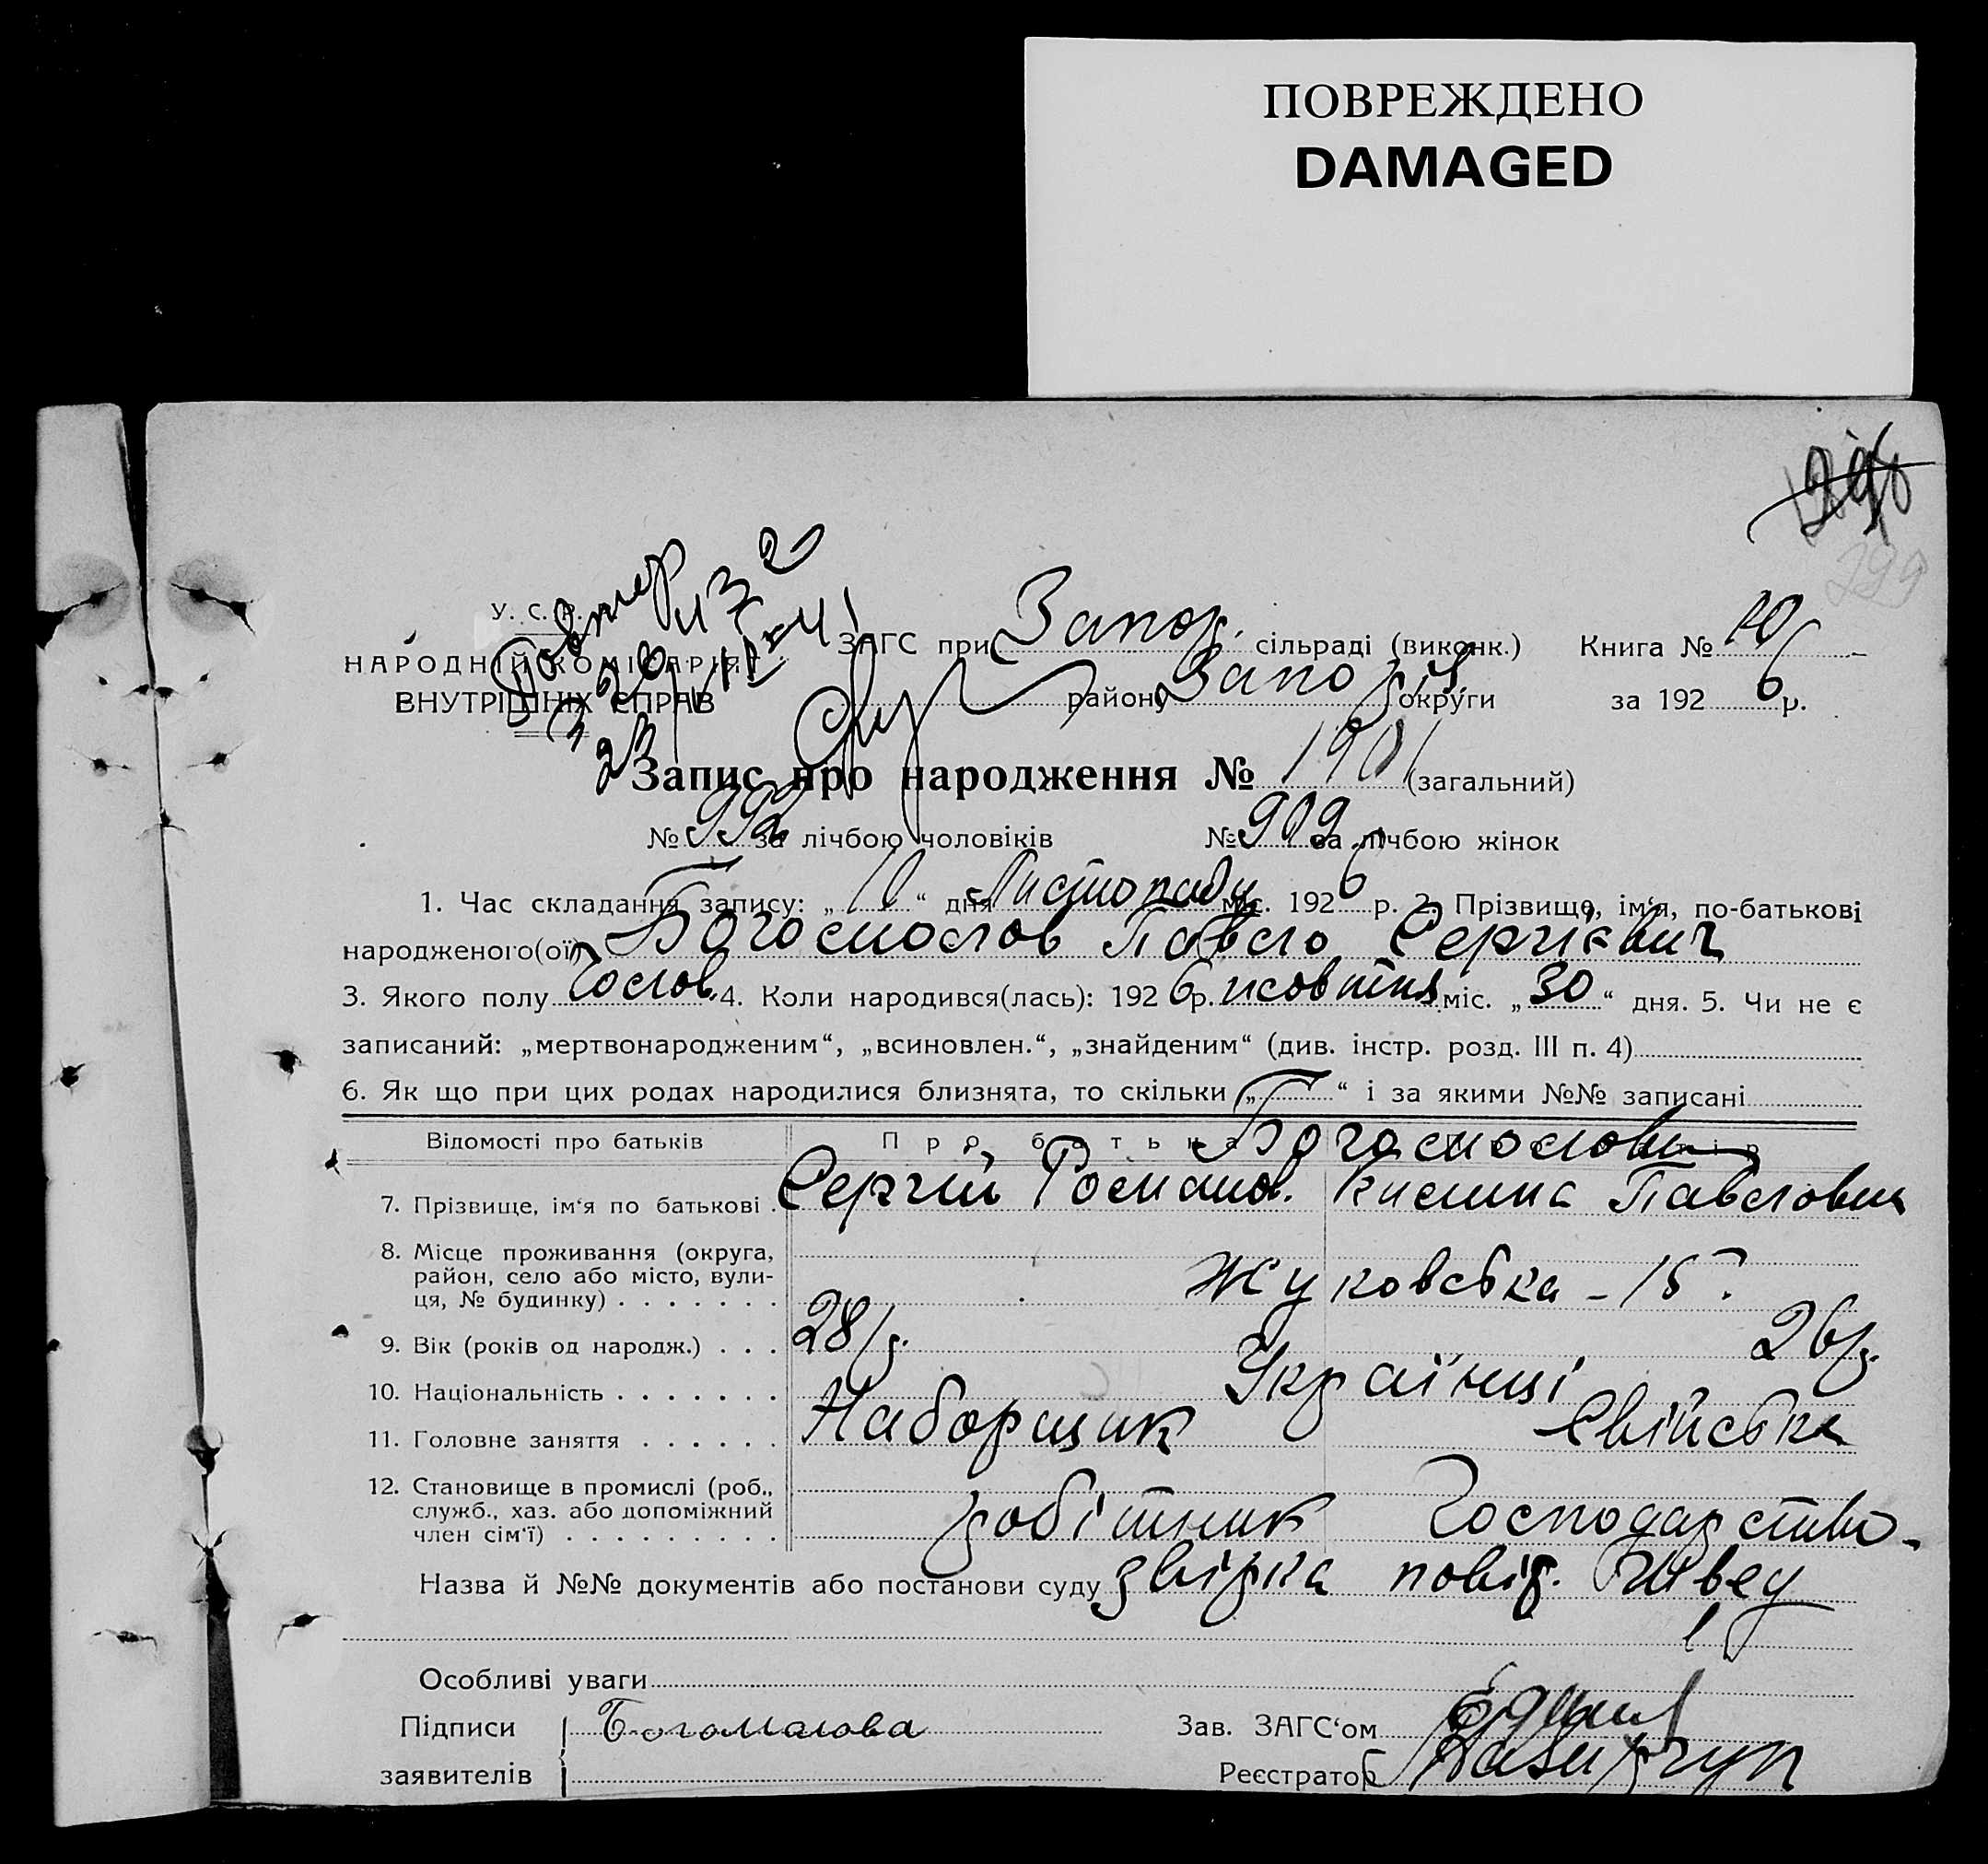 ПОВРЕЖДЕНО
DAMAGED
299
У. С. Р. Р.
НАРОДНІЙ КОМІСАРІЯТ
ВНУТРІШНІХ СПРАВ
ЗАГС при Запор. сільраді (виконк.) Книга № 10
району Запоріз. округи за 1926 р.
Запис про народження № 1901 (загальний)
№ 992 за лічбою чоловіків № 909 за лічбою жінок
1. Час складання запису: „10“ дня Листопаду міс. 1926 р. 2. Прізвище, ім‘я, по-батькові
народженого(ої) Богомолов Павло Сергієвич
3. Якого полу чолов. 4. Коли народився(лась): 1926 р. жовтня міс. „30“ дня. 5. Чи не є
записаний: „мертвонародженим“, „всиновлен.“, „знайденим“ (див. інстр. розд. III п. 4)
6. Як що при цих родах народилися близнята, то скільки „ “ і за якими №№ записані
Відомості про батьків Про батька Богомолови
7. Прізвище, ім‘я по батькові . Сергій Роман. Павловна
8. Місце проживання (округа,
район, село або місто, вули-
ця, № будинку) . . . . . . . Жуковська – 15
9. Вік (років од народж.) . . . 28 р. 26 р.
10. Національність . . . . . . . Українці
11. Головне заняття . . . . . . Наборщик Свійська
12. Становище в промислі (роб.,
служб., хаз. або допоміжний
член сім‘ї) . . . . . . . . . робітник Господарство.
Назва й №№ документів або постанови суду звірка повід. Швед
Особливі уваги
Підписи Богомолова Зав. ЗАГС‘ом
заявителів Реєстратор